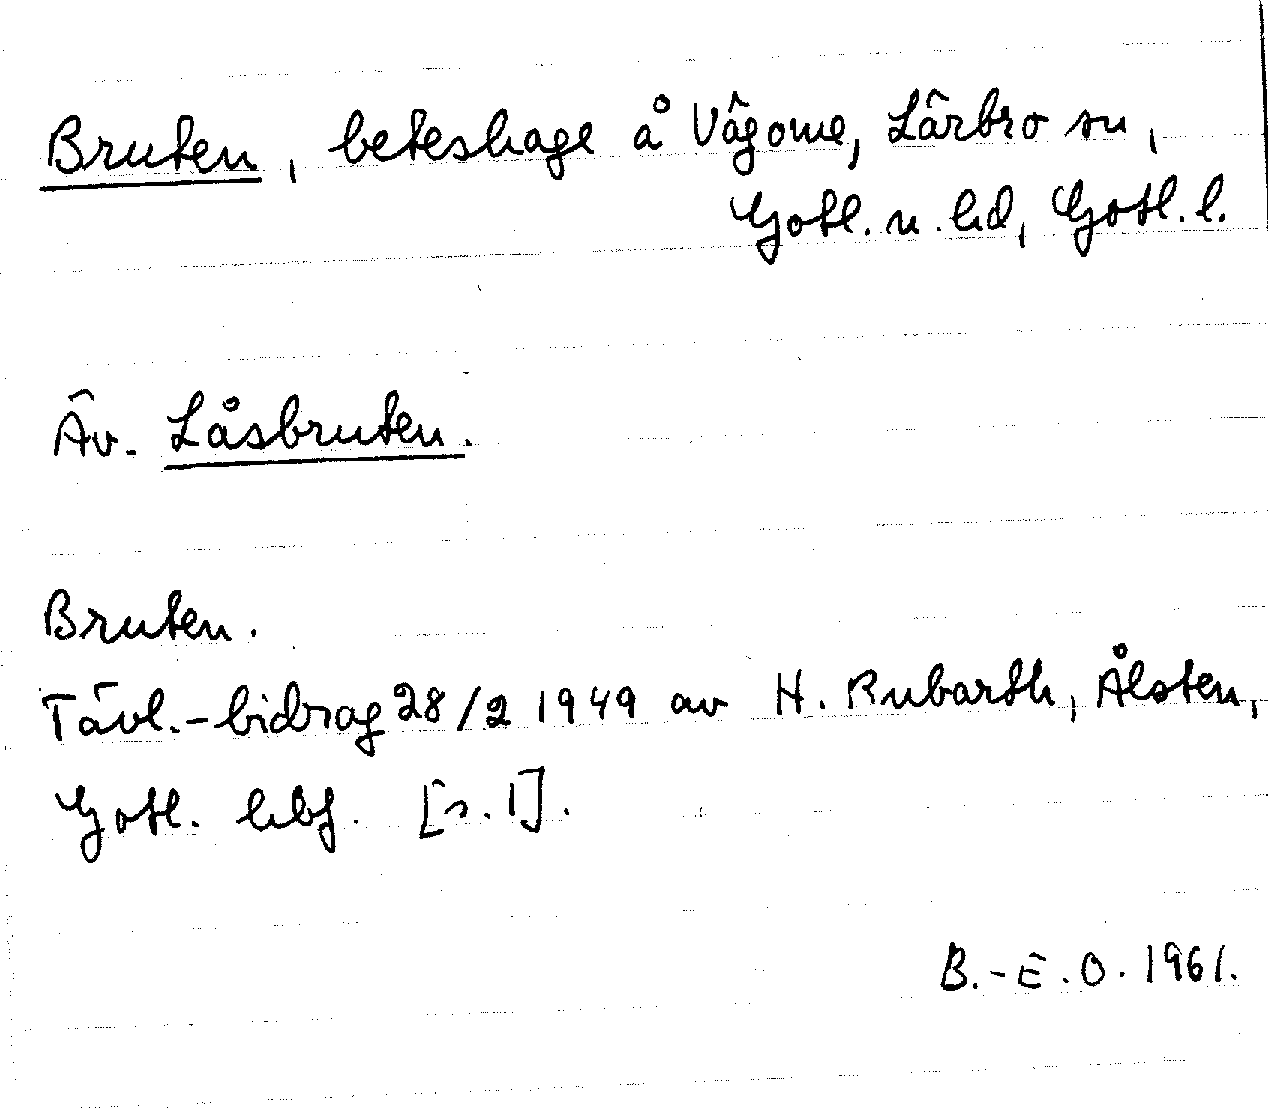 Bruten, beteshage å Vägome, Lärbro sn,
Gotl. n. hd, Gotl. l.
Äv. Låsbruten.
Bruten.
Tävl.-bidrag 28/2 1949 av H. Rubarth, Ålsten,
Gotl. hbf. [s. 1].
B.-E. O. 1961.